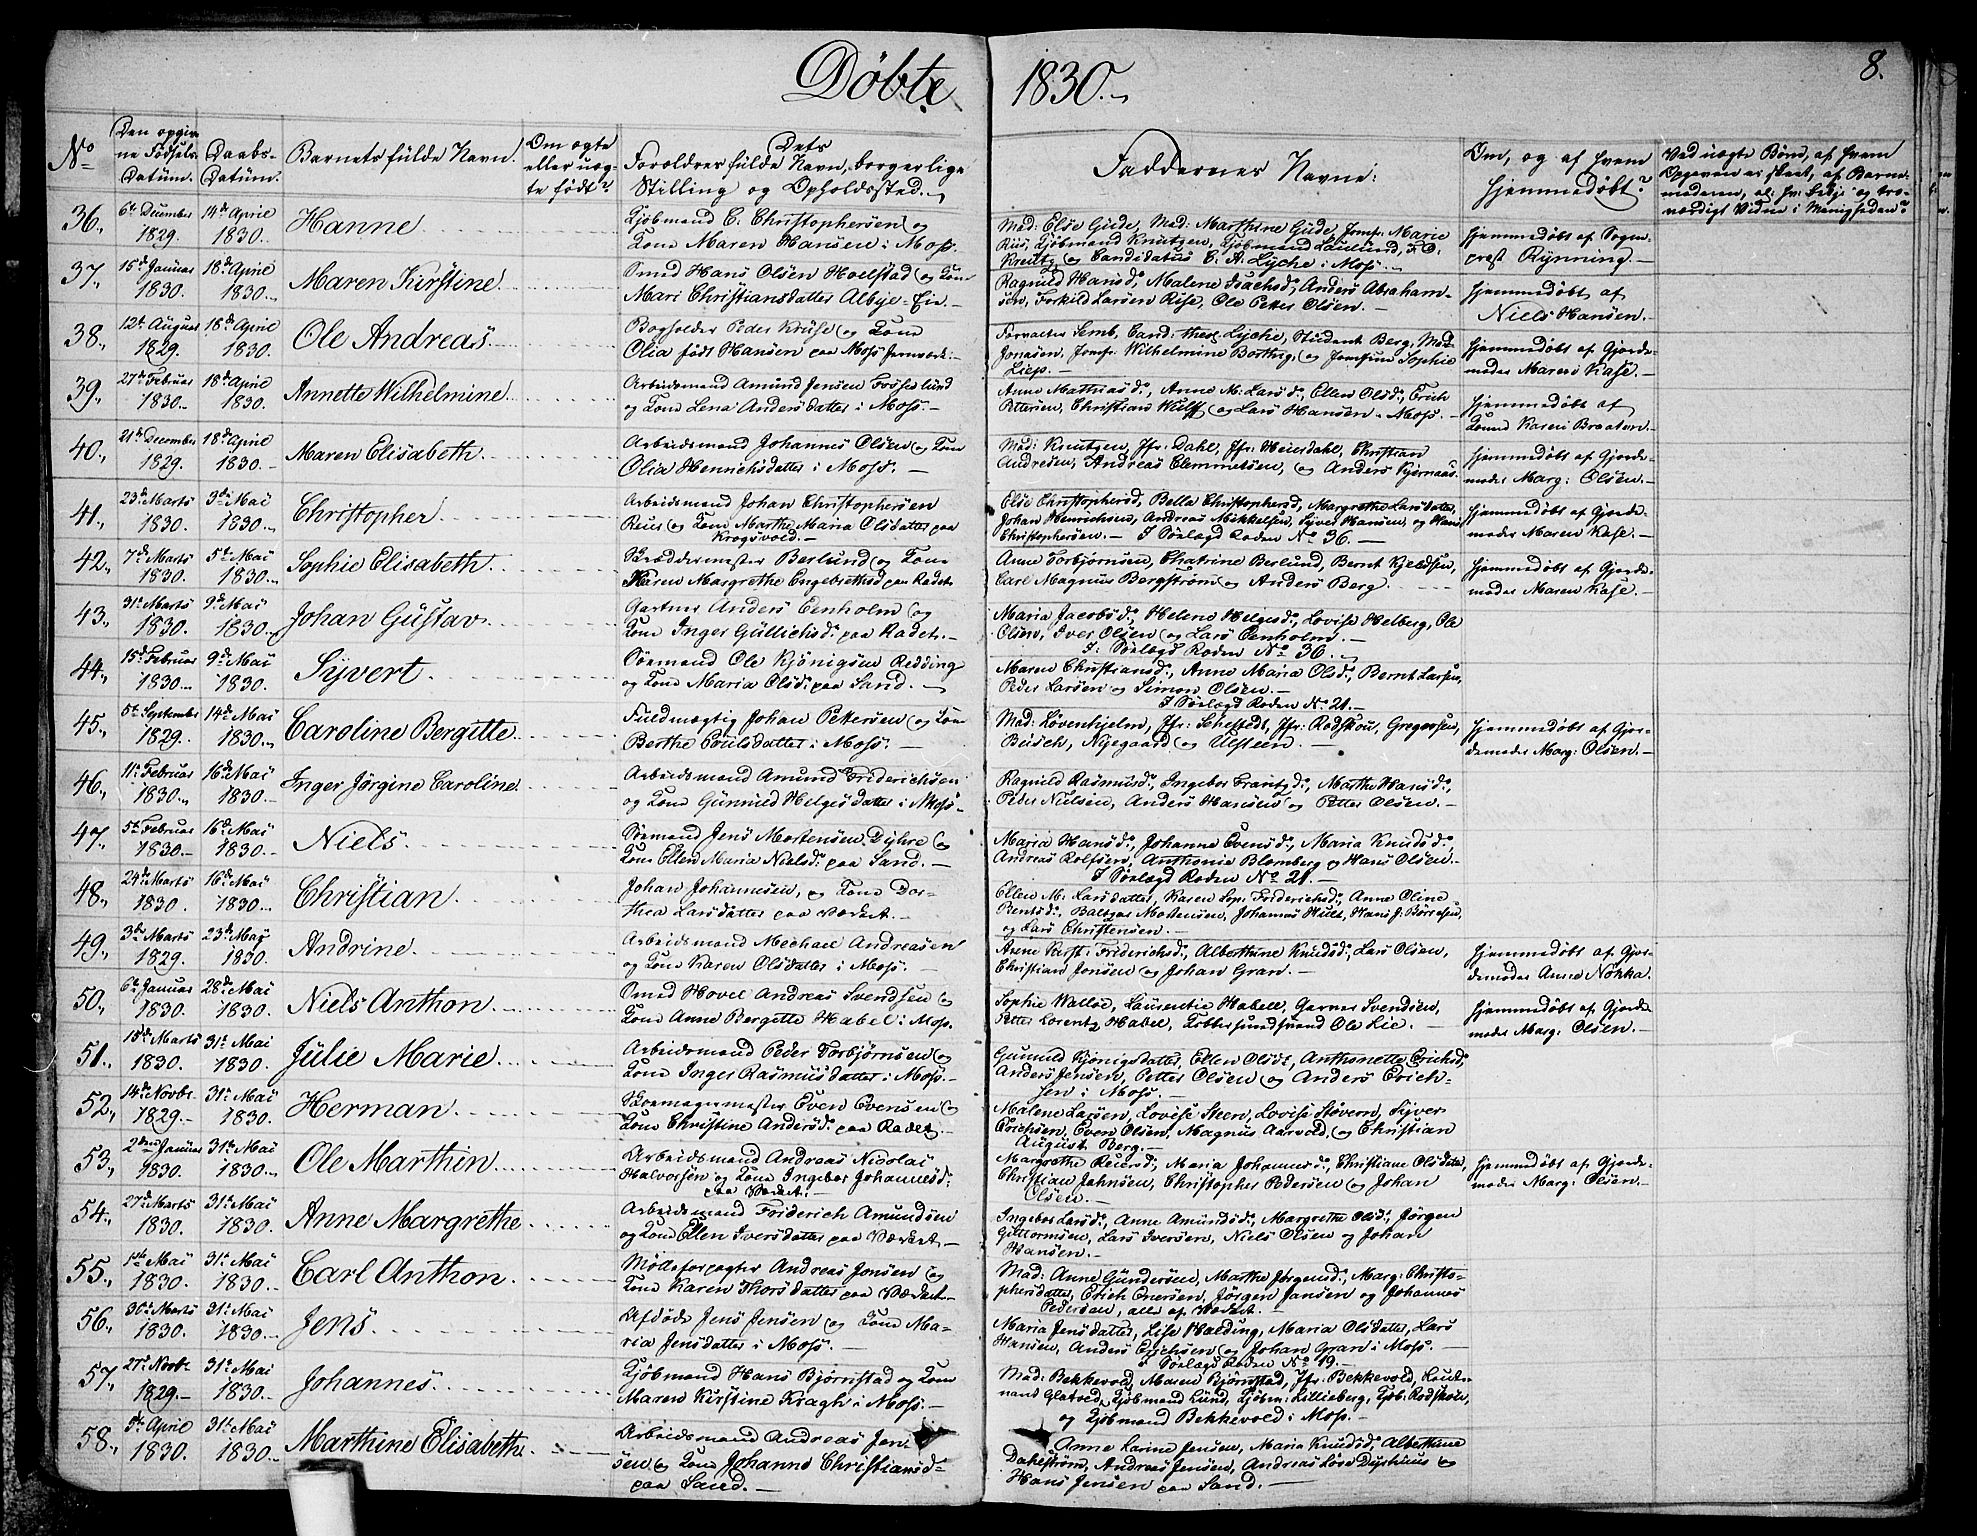 Døbte 1830.
8.
No
Den opgivne Fødsels-Datum.
Daabs-Datum.
Barnets fulde Navn.
Om ægte eller uægte født?
Dets Forældres fulde Navn, borgerlige Stilling og Opholdssted.
Faddernes Navne:
Om, og af hvem hjemmedøbt?
36., 6te December 1829. 14de April 1830. Hanne
Kjøbmand C. Christophersen og
Kone Maren Hansen i Moss.
Mad: Else Gude, Mad: Marthine Gude, Jomf: Marie
Riis, Kjøbmand Kreutzen, Kjøbmand Laulund, F. D.
Kreutz og Candidatus C. A. Lyche i Moss.
hjemmedøbt af Sogne-
præst Rynning.
37., 15de Januar 1830. 18de April 1830. Maren Kirstine
Smed Hans Olsen Hoelstad og Kone
Mari Christiansdatter Albye-Eie.
Ragnild Hansd:, Malene Isachsd:, Anders Abraham-
sen, Torkild Larsen Riise, Ole Petter Olsen.
hjemmedøbt af
Niels Hansen.
38., 12te August 1829. 18de April 1830. Ole Andreas
Bogholder Peder Kruse og Kone
Olia født Hansen paa Moss Jernværk.
Forvalter Semb, Cand: theol Lyche, Student Berg, Mad
Jonasen, Jomfr: Wilhelmine Borthig, og Jomfrue Sophie
Liep.
hjemmedøbt af Gjorde-
moder Maren Kase.
39., 27de Februar 1830. 18de April 1830. Annette Wilhelmine
Arbeidsmand Amund Jensen Froselund
og Kone Lena Andersdatter i Moss.
Anne Mathiasd:, Anne M: Larsd:, Ellen Olsd:, Erich
Pettersen, Christian Wulff og Lars Hansen i Moss.
hjemmedøbt af
Kone Karen Braaten.
40., 21de December 1829. 18de April 1830. Maren Elisabeth
Arbeidsmand Johannes Olsen og Kone
Olia Henrichsdatter i Moss.
Mad: Kreutzen, Jfr: Dahl, Jfr: Heierdahl, Christian
Andresen, Andreas Clemmetsen, og Anders Bjørnaas.
hjemmedøbt af Gjorde-
moder Marg: Olsen.
41., 23de Marts 1830. 3de Mai 1830. Christopher
Arbeidsmand Johan Christophersen
Riis og Kone Marthe Maria Olsdatter paa
Krogsvold.
Else Christophersd, Belle Christophersd, Margrethe Larsdatter,
Johan Henrichsen, Andreas Mikkelsen, Syver Hansen, og Hans
Christophersen. I Sørlægd Roden No 36.
hjemmedøbt af Gjorde-
moder Maren Kase.
42., 7de Marts 1830. 5te Mai 1830. Sophie Elisabeth
Skræddermester Berlund og Kone
Karen Margrethe Engebrethsd paa Radet
Anne Torbjørnsen, Chatrine Berlund, Bernt Kjeldsen,
Carl Magnus Bergstrøm og Anders Berg.
hjemmedøbt af Gjorde-
moder Maren Kase.
43., 31te Marts 1830. 9de Mai 1830. Johan Gustav
Gartner Anders Eenholm og
Kone Inger Gullichsd: paa Radet.
Maria Jacobsd:, Helene Helgesd:, Lovise Helberg, Ole
Olsen, Iver Olsen og Lars Eenholm.
I: Sørlægd Roden No 36.
44., 15de Februar 1830. 9de Mai 1830. Syvert
Sømand Ole Kjønigsen Redding
og Kone Maria Olsd: paa Sand.
Maren Christiansd:, Anne Maria Olsd:, Bernt Larsen,
Peder Larsen og Simon Olsen.
I Sørlægd Roden No 21.
45., 5te September 1829. 14de Mai 1830. Caroline Bergitte
Fuldmægtig Johan Pettersen og Kone
Berthe Poulsdatter i Moss.
Mad: Løvenhjelm, Jfr: Schestedt, Jfr: Rodskou, Gregersen,
Beisch, Nyegaard og Ulsteen.
hjemmedøbt af Gjor-
demoder Marg: Olsen.
46., 11te Februar 1830. 16de Mai 1830. Inger Jørgine Caroline
Arbeidsmand Amund Friderichsen
og Kone Gunnild Helgesdatter i Moss.
Ragnild Rasmusd:, Ingebor Frantzd:, Marthe Hansd:,
Peder Nielsen, Anders Hansen og Petter Olsen.
47., 5te Februar 1830. 16de Mai 1830. Niels
Sømand Jens Mortensen Dyhre og
Kone Ellen Maria Nielsd: paa Sand.
Maria Hansd:, Johanne Evensd:, Maria Knudsd:,
Andreas Rolfsen, Anthonia Blomberg og Hans Olsen.
I Sørlægd Roden No 21.
48., 24de Marts 1830. 16de Mai 1830. Christian
Johan Johannesen, og Kone Dor-
thea Larsdatter paa Værket.
Ellen M: Larsdatter, Karen Sop: Friderichsd:, Anne Oline
Berntsd:, Baltzer Mortensen, Johannes Hult, Hans J: Børresen,
og Lars Christensen.
49., 3die Marts 1829. 23de May 1830. Andrine
Arbeidsmand Michael Andreasen
og Kone Karen Olsdatter i Moss.
Anne Kirst: Friderichsd:, Alberthine Knudsd:, Lars Olsen,
Christian Jonsen og Johan Gran.
hjemmedøbt af Gjor-
demoder Anne Nøkka.
50., 6te Januar 1830. 28de Mai 1830. Niels Anthon
Smed Hovel Andreas Svendsen og
Kone Anne Bergette Habel i Moss.
Sophie Walloe, Laurentie Habell, Garver Svendsen,
Petter Lorentz Habel, Kobbersmedsvend Ole Lie.
hjemmedøbt af Gjorde-
moder Marg: Olsen.
51., 15de Marts 1830. 31te Mai 1830. Julie Marie
Arbeidsmand Peder Torbjørnsen og
Kone Inger Rasmusdatter i Moss.
Gunnild Kjønigsdatter, Ellen Olsdt, Anthonette Erichsd:,
Anders Jensen, Petter Olsen og Anders Erich-
sen i Moss.
52., 14de Novbr. 1829. 31te Mai 1830. Herman
Skomagermester Even Evensen og
Kone Christine Andersd: paa Radet.
Malene Larsen, Lovise Steen, Lovise Støvern, Syver
Erichsen, Even Olsen, Magnus Aarvold, og Christian
August Berg.
53., 2den Januar 1830. 31te Mai 1830. Ole Marthin
Arbeidsmand Andreas Nicolai
Halvorsen og Kone Ingebor Johannesd:
paa Værket.
Margrethe Reiersd:, Maria Johannesd:, Christiane Olsdatter,
Christian Jahnsen, Christopher Pedersen og Johan
Olsen.
hjemmedøbt af Gjorde-
moder Marg: Olsen.
54., 27de Marts 1830. 31te Mai 1830. Anne Margrethe
Arbeidsmand Friderich Amundsen
og Kone Ellen Iversdatter paa Værket.
Ingebor Larsd:, Anne Amundsd:, Margrethe Olsd:, Jørgen
Guttormsen, Lars Iversen, Niels Olsen og Johan
Hansen.
55., 1ste Mai 1830. 31te Mai 1830. Carl Anthon
Mølleforpagter Andreas Jonsen og
Kone Karen Thorsdatter paa Værket.
Mad: Anne Gundersen, Marthe Jørgensd:, Marg: Christo-
phersdatter, Erich Enersen, Jørgen Jansen og Johannes
Pedersen, alle af Værket.
56., 30te Marts 1830. 31te Mai 1830. Jens
Afdøde Jens Jensen og Kone Ma-
ria Jensdatter i Moss.
Maria Jensdatter, Lise Halding, Maria Olsdatter, Lars
Hansen, Anders Erichsen og Johan Gran i Moss.
I Sørlægd Roden No 19.
57., 27de Novbr. 1829. 31te Mai 1830. Johannes
Kjøbmand Hans Bjørnstad og Kone
Maren Kirstine Kragh i Moss.
Mad: Bekkevold, Maren Bjørnstad, Jfr: Bekkevold, Lieute-
nant Glatved, Kjøbmand Lund, Kjøbm: Lillieberg, Kjøb: Rodskou,
og Kjøbmand Bekkevold i Moss.
58., 5te April 1830. 31te Mai 1830. Marthine Elisabeth
Arbeidsmand Andreas Jen-
sen og Kone Johanne Christiansd
paa Sand.
Anne Larine Jensen, Maria Knudsd, Alberthine
Dahlstrøm, Andreas Jensen, Andreas Lose Dyphuus og
Hans Jensen paa Sand.